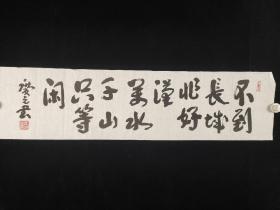 不到
長城
非好
漢
萬水
千山
只等
閑